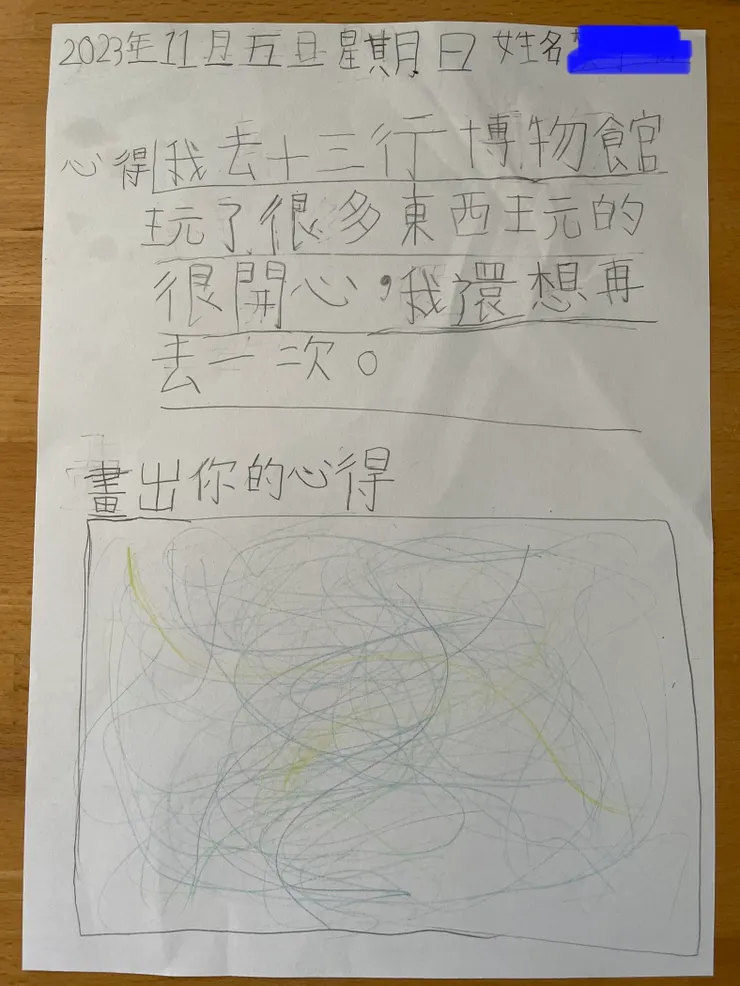 2023年11月五日星期日 姓名
心得 我去十三行博物館
玩了很多東西玩的
很開心，我還想再
去一次。
畫出你的心得